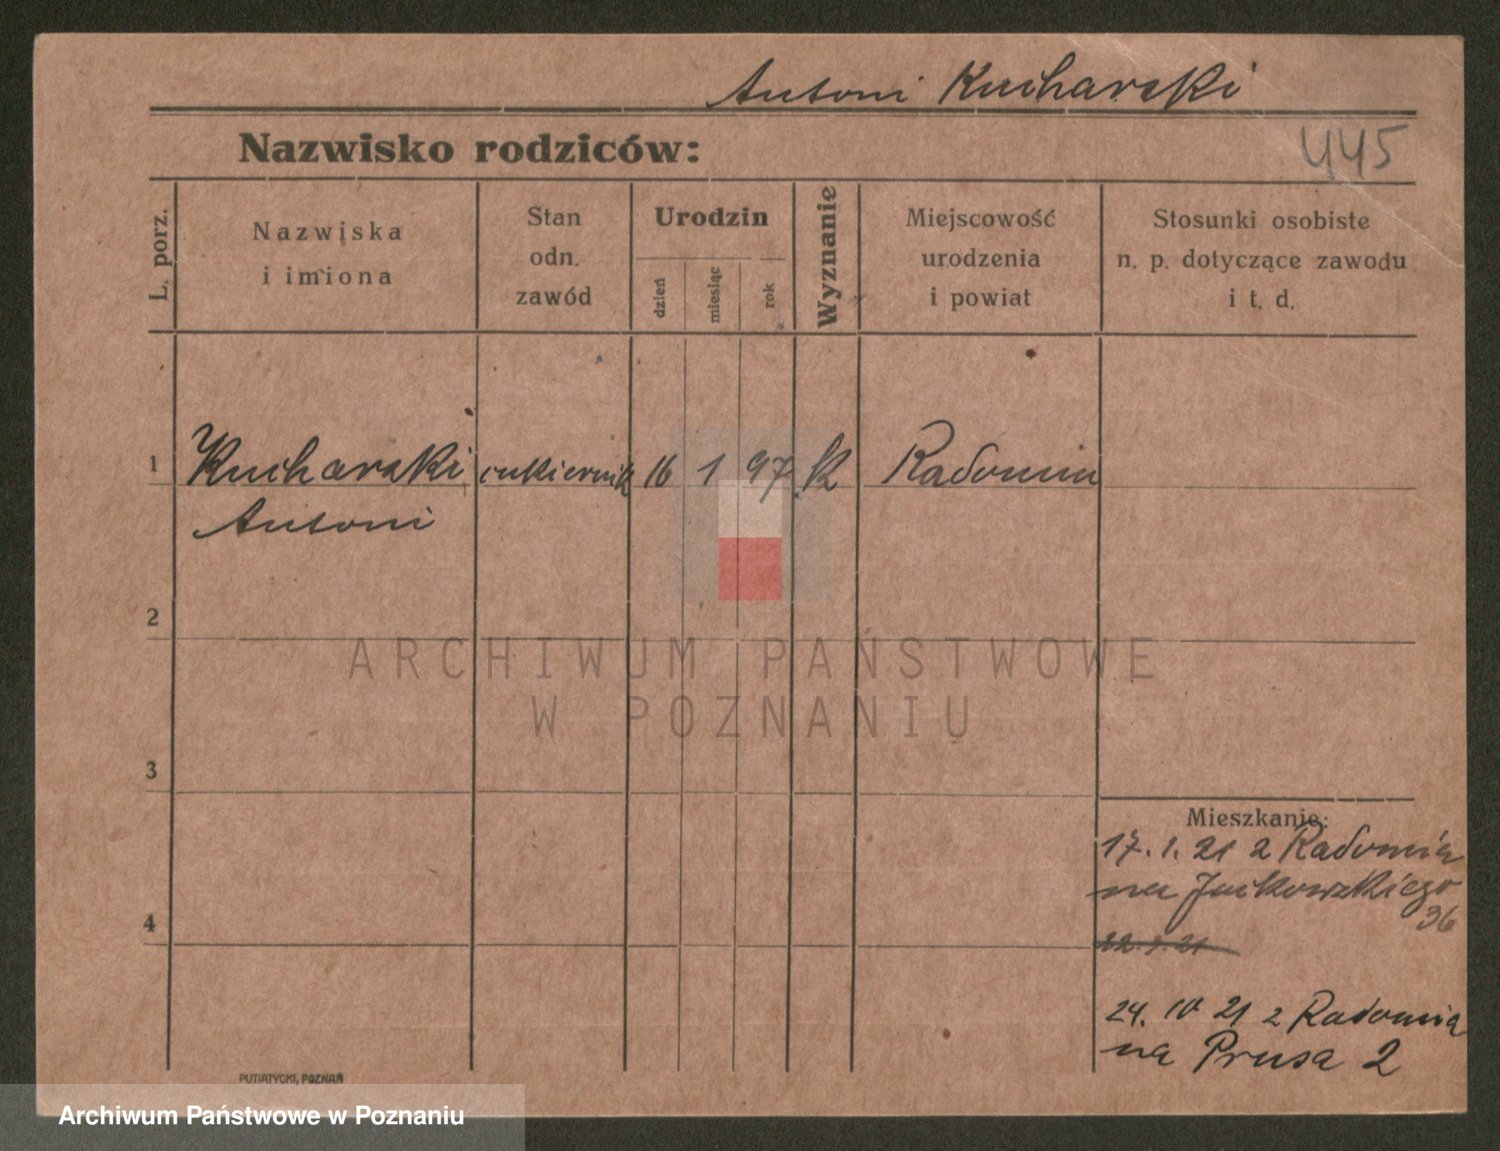 Antoni Kucharski
Nazwisko rodziców:
445
L. porz.
Nazwiska
i imiona
Stan
odn.
zawód
Urodzin
dzień
miesiąc
rok
Wyznanie
Miejscowość
urodzenia
i powiat
Stosunki osobiste
n. p. dotyczące zawodu
i t. d.
1 Kucharski cukiernik 16 1 97 k Radomin
Antoni
2
ARCHIWUM PAŃSTWOWE
W POZNANIU
3
Mieszkanie:
17. 1. 21 z Radomia
na Jackowskiego
36
4
24. IV 21 z Radomia
na Prusa 2
PUTIATYCKI, POZNAŃ
Archiwum Państwowe w Poznaniu